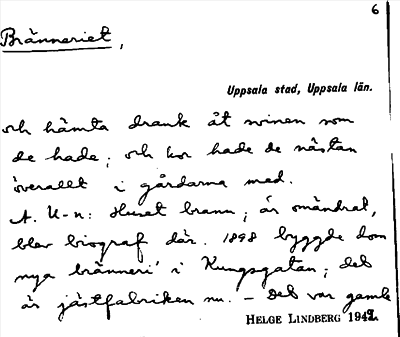 6
Bränneriet,
Uppsala stad, Uppsala län.
och hämta drank åt svinen som
de hade; och kor hade de nästan
överallt i gårdarna med.
A. U-n: Huset brann; är omändrat,
blev biograf där. 1898 byggde dom
nya bränneri' i Kungsgatan; det
är jästfabriken nu. – Det var gamle
HELGE LINDBERG 1942.